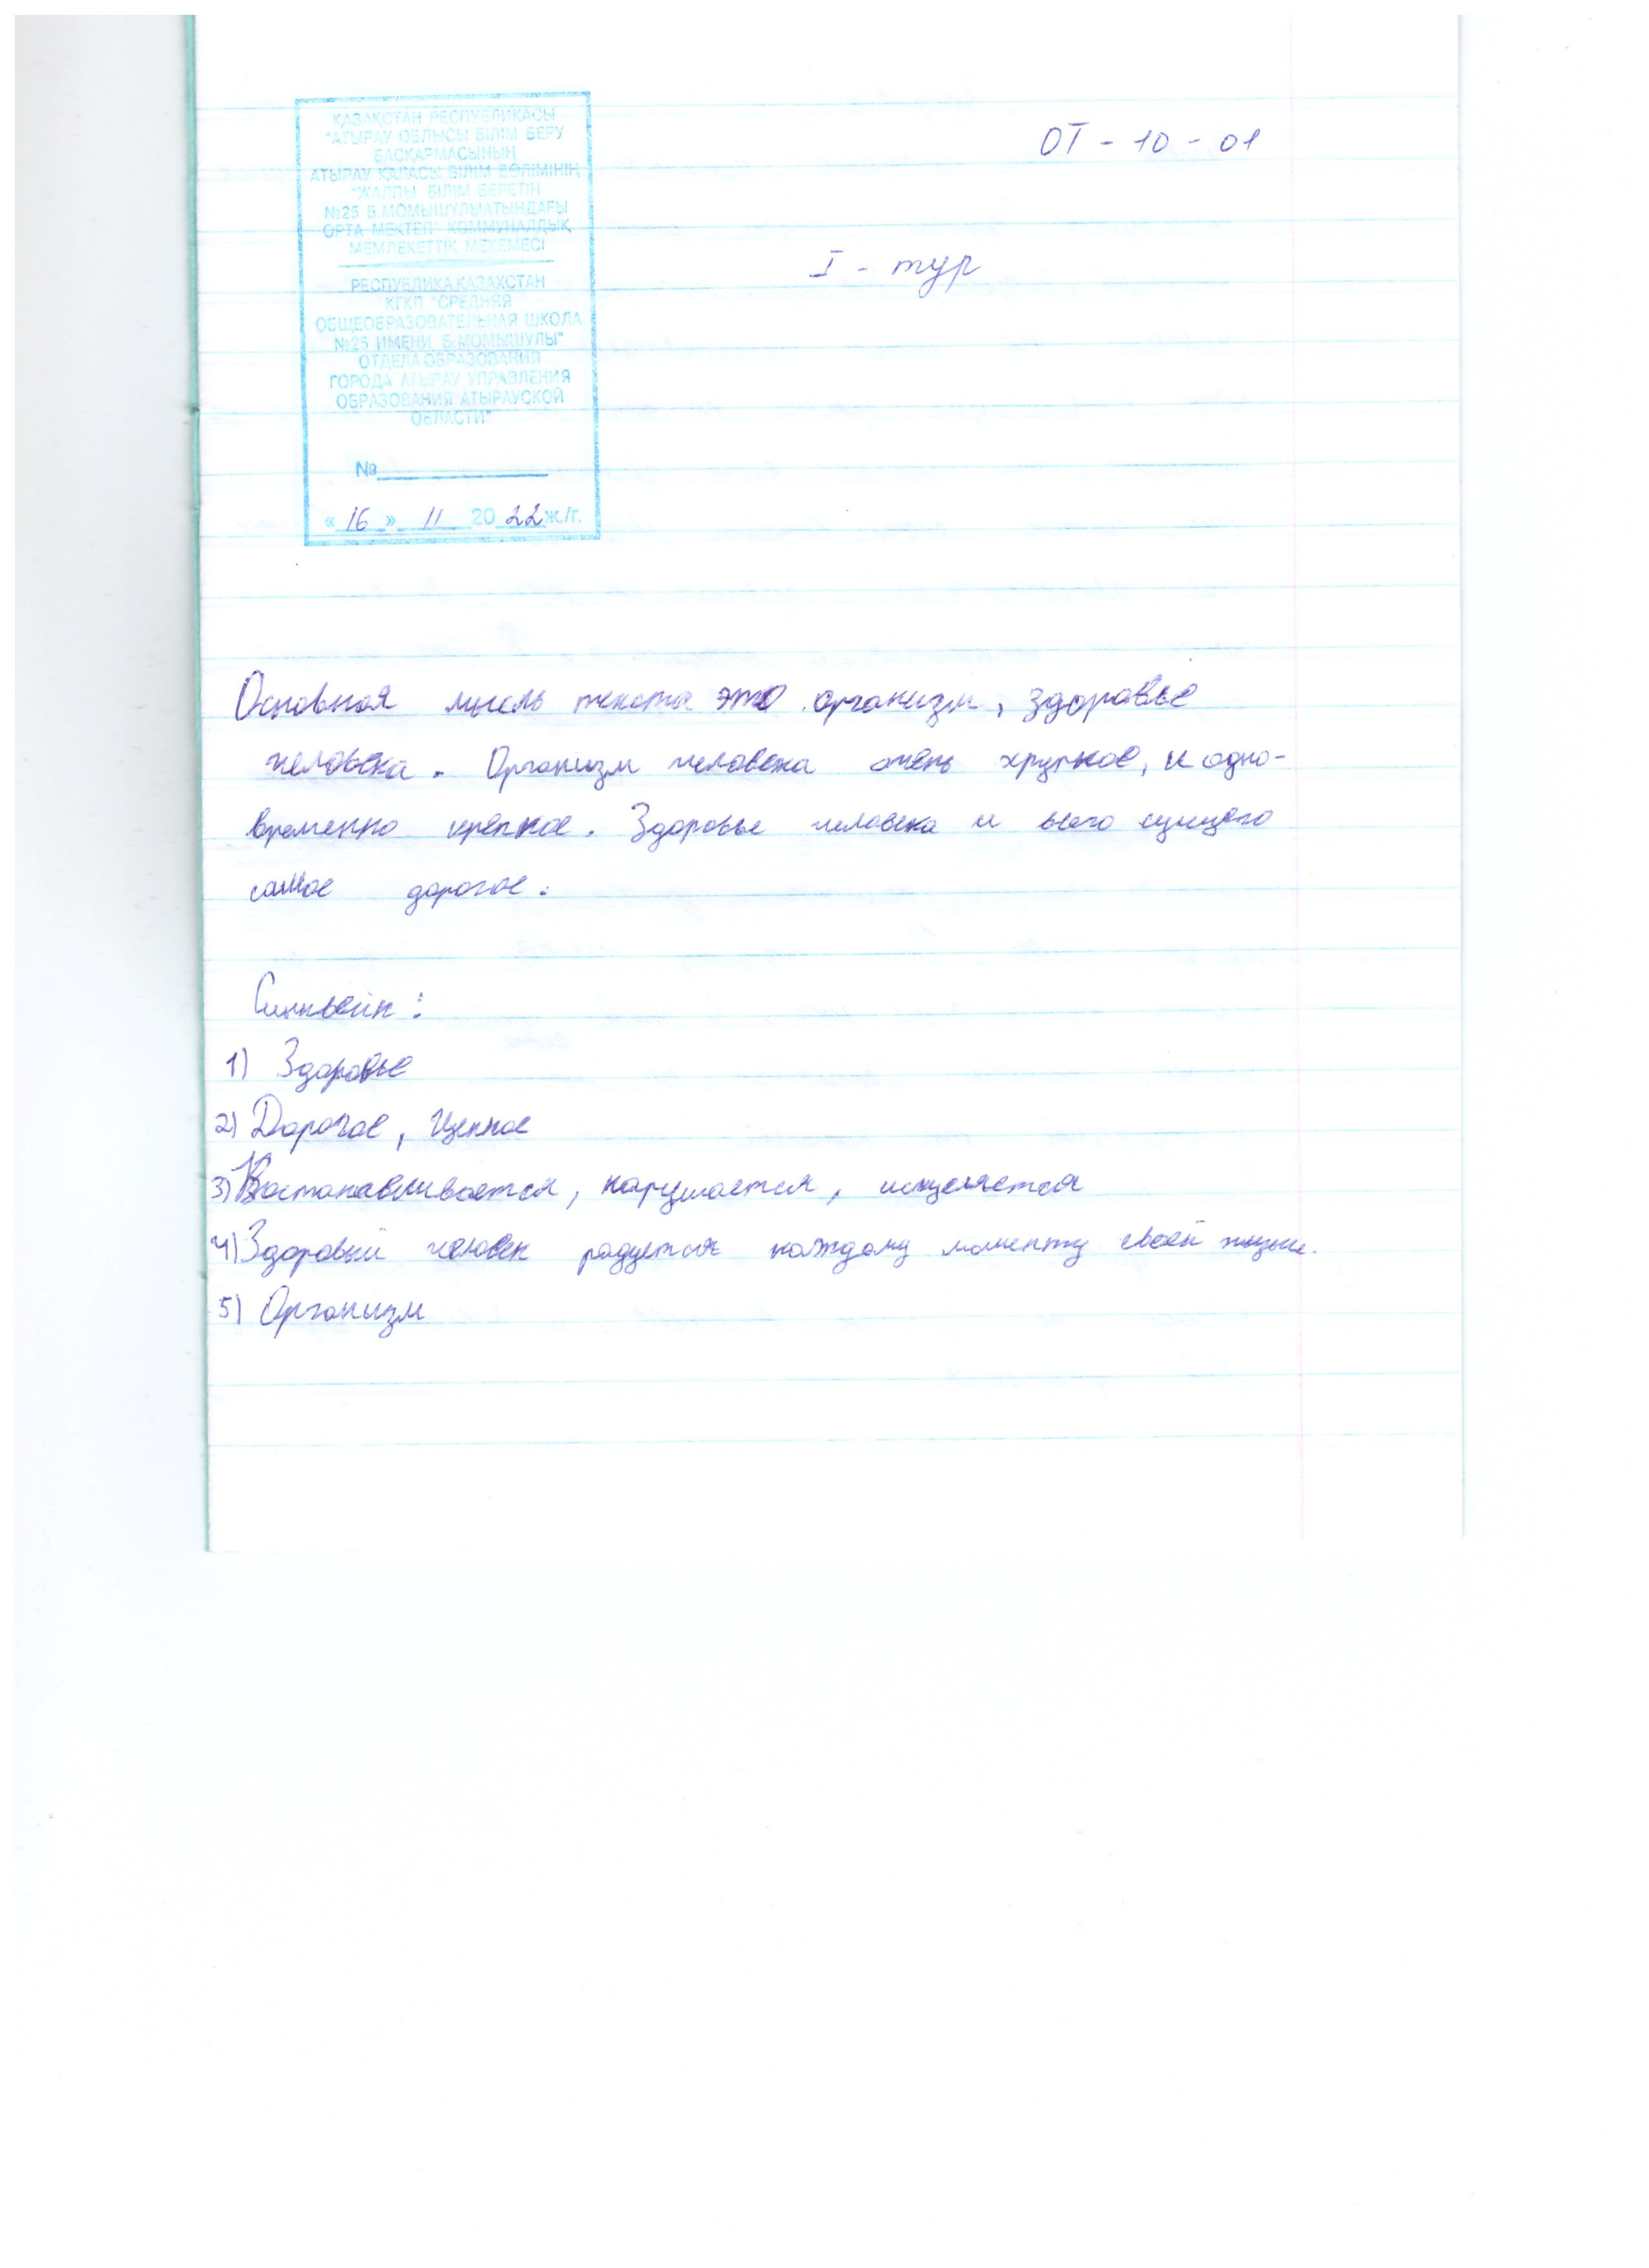 ҚАЗАҚСТАН РЕСПУБЛИКАСЫ
"АТЫРАУ ОБЛЫСЫ БІЛІМ БЕРУ
БАСҚАРМАСЫНЫҢ
АТЫРАУ ҚАЛАСЫ БІЛІМ БӨЛІМІНІҢ
"ЖАЛПЫ БІЛІМ БЕРЕТІН
№25 Б.МОМЫШҰЛЫАТЫНДАҒЫ
ОРТА МЕКТЕП" КОММУНАЛДЫҚ
МЕМЛЕКЕТТІК МЕКЕМЕСІ
РЕСПУБЛИКА КАЗАХСТАН
КГКП "СРЕДНЯЯ
ОБЩЕОБРАЗОВАТЕЛЬНАЯ ШКОЛА
№25 ИМЕНИ Б.МОМЫШУЛЫ"
ОТДЕЛА ОБРАЗОВАНИЯ
ГОРОДА АТЫРАУ УПРАВЛЕНИЯ
ОБРАЗОВАНИЯ АТЫРАУСКОЙ
ОБЛАСТИ"
№
« 16 » 11 2022 ж./г.
ОТ - 10 - 01
I - тур
Основная мысль текста это организм, здоровье
человека. Организм человека очень хрупкое, и одно-
временно крепкое. Здоровье человека и всего сущего
самое дорогое.
Синквейн:
1) Здоровье
2) Дорогое, ценное
3) Востанавливается, нарушается, исцеляется
4) Здоровый человек радуется каждому моменту своей жизни.
5) Организм